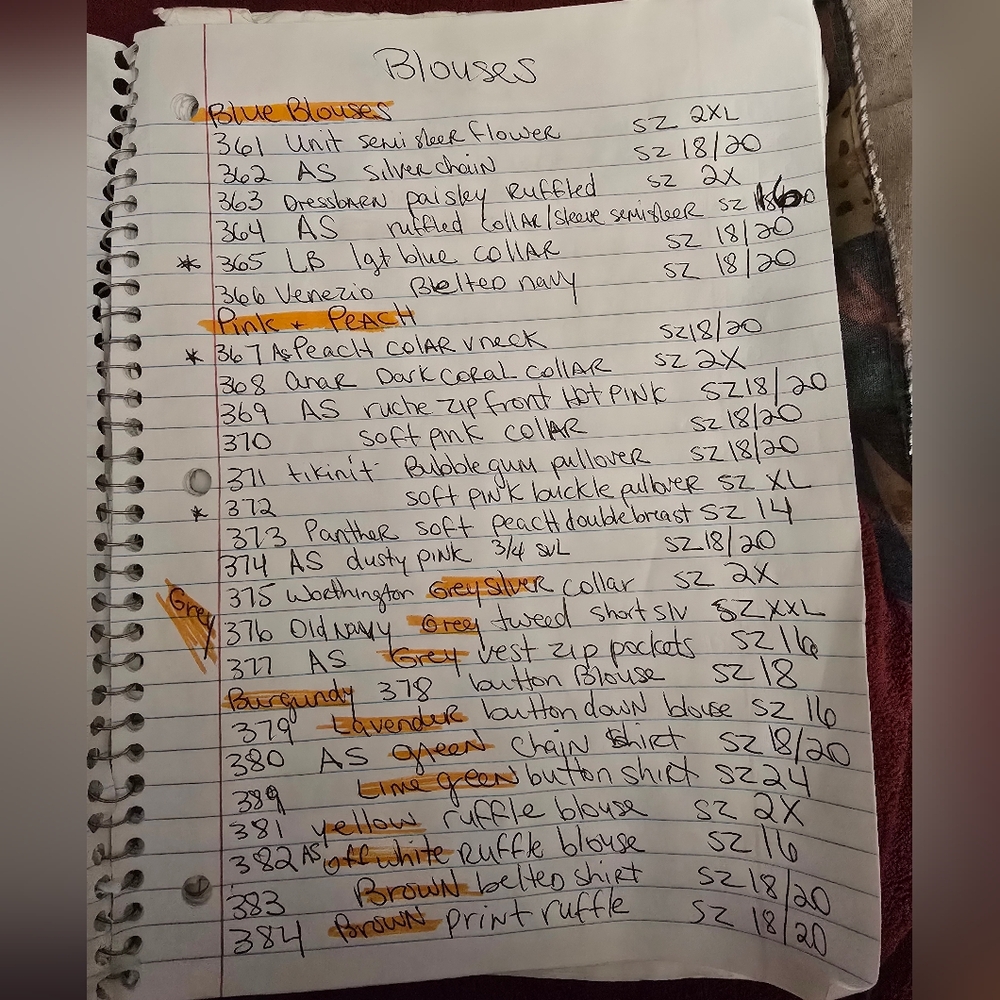 Blouses
Blue Blouses
361 Unit semisleer flower SZ 2XL
362 AS silverchain SZ 18/20
363 Dressbarn paisley Ruffled SZ 2X
364 AS ruffled collar/sleeve semisleer SZ
* 365 LB lgt blue collar SZ 18/20
366 Venezio Belted navy SZ 18/20
Pink + Peach
* 367 AS Peach colar vneck SZ 18/20
368 anar Dark coral collar SZ 2X
369 AS ruche zip front Hot Pink SZ 18/20
370 soft pink collar SZ 18/20
371 tikinit Bubblegum pullover SZ 18/20
* 372 soft pink buckle pullover SZ XL
373 Panther soft peach doublebreast SZ 14
374 AS dusty pink 3/4 SVL SZ 18/20
375 Worthington Grey Silver collar SZ 2X
Grey
376 Old Navy Grey tweed short slv SZ XXL
377 AS Grey vest zip pockets SZ 16
Burgundy 378 button Blouse SZ 18
379 Lavender button down blouse SZ 16
380 AS green chain shirt SZ 18/20
389 Lime green button shirt SZ 24
381 yellow ruffle blouse SZ 2X
382 AS offwhite Ruffle blouse SZ 16
383 Brown belted shirt SZ 18/20
384 Brown print ruffle SZ 18/20